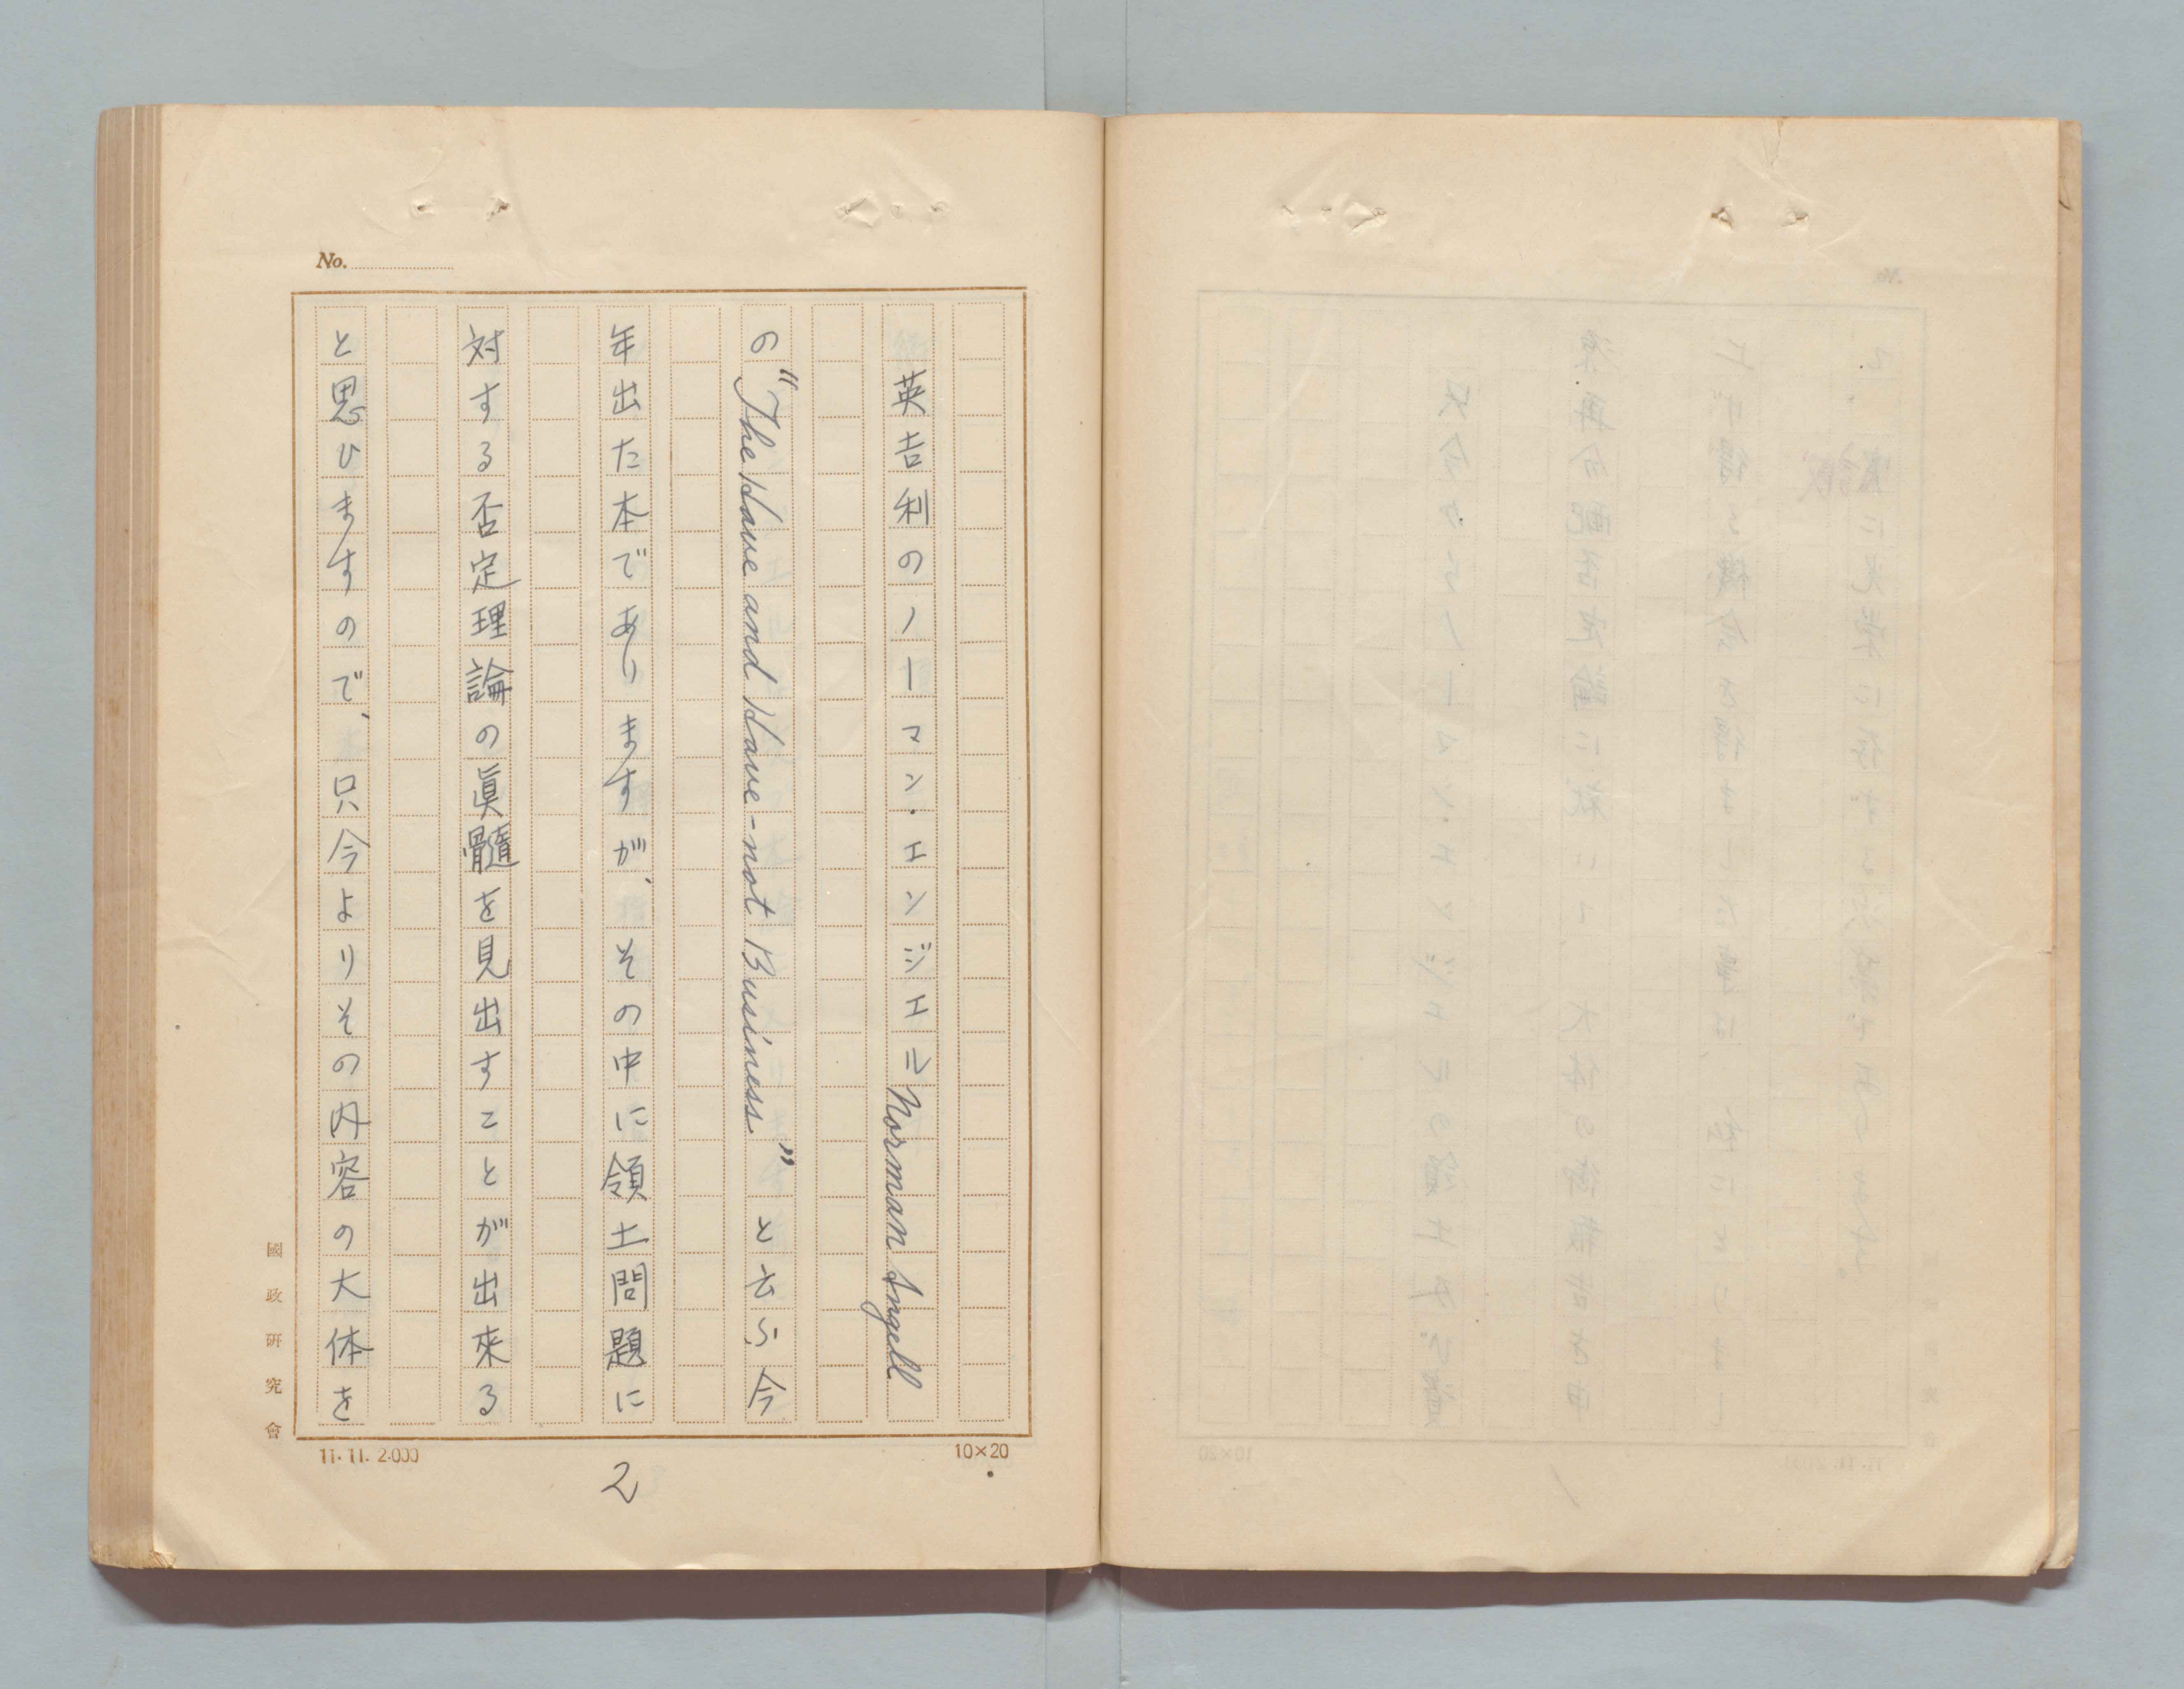 No.
英吉利のノーマン・エンジエル Norman Angell
の "The Have and Have-not Business" と云ふ今
年出た本でありますが、その中に領土問題に
対する否定理論の眞髓を見出すことが出來る
と思ひますので、只今よりその内容の大体を
國政研究會
11.11.2.000
10×20
2